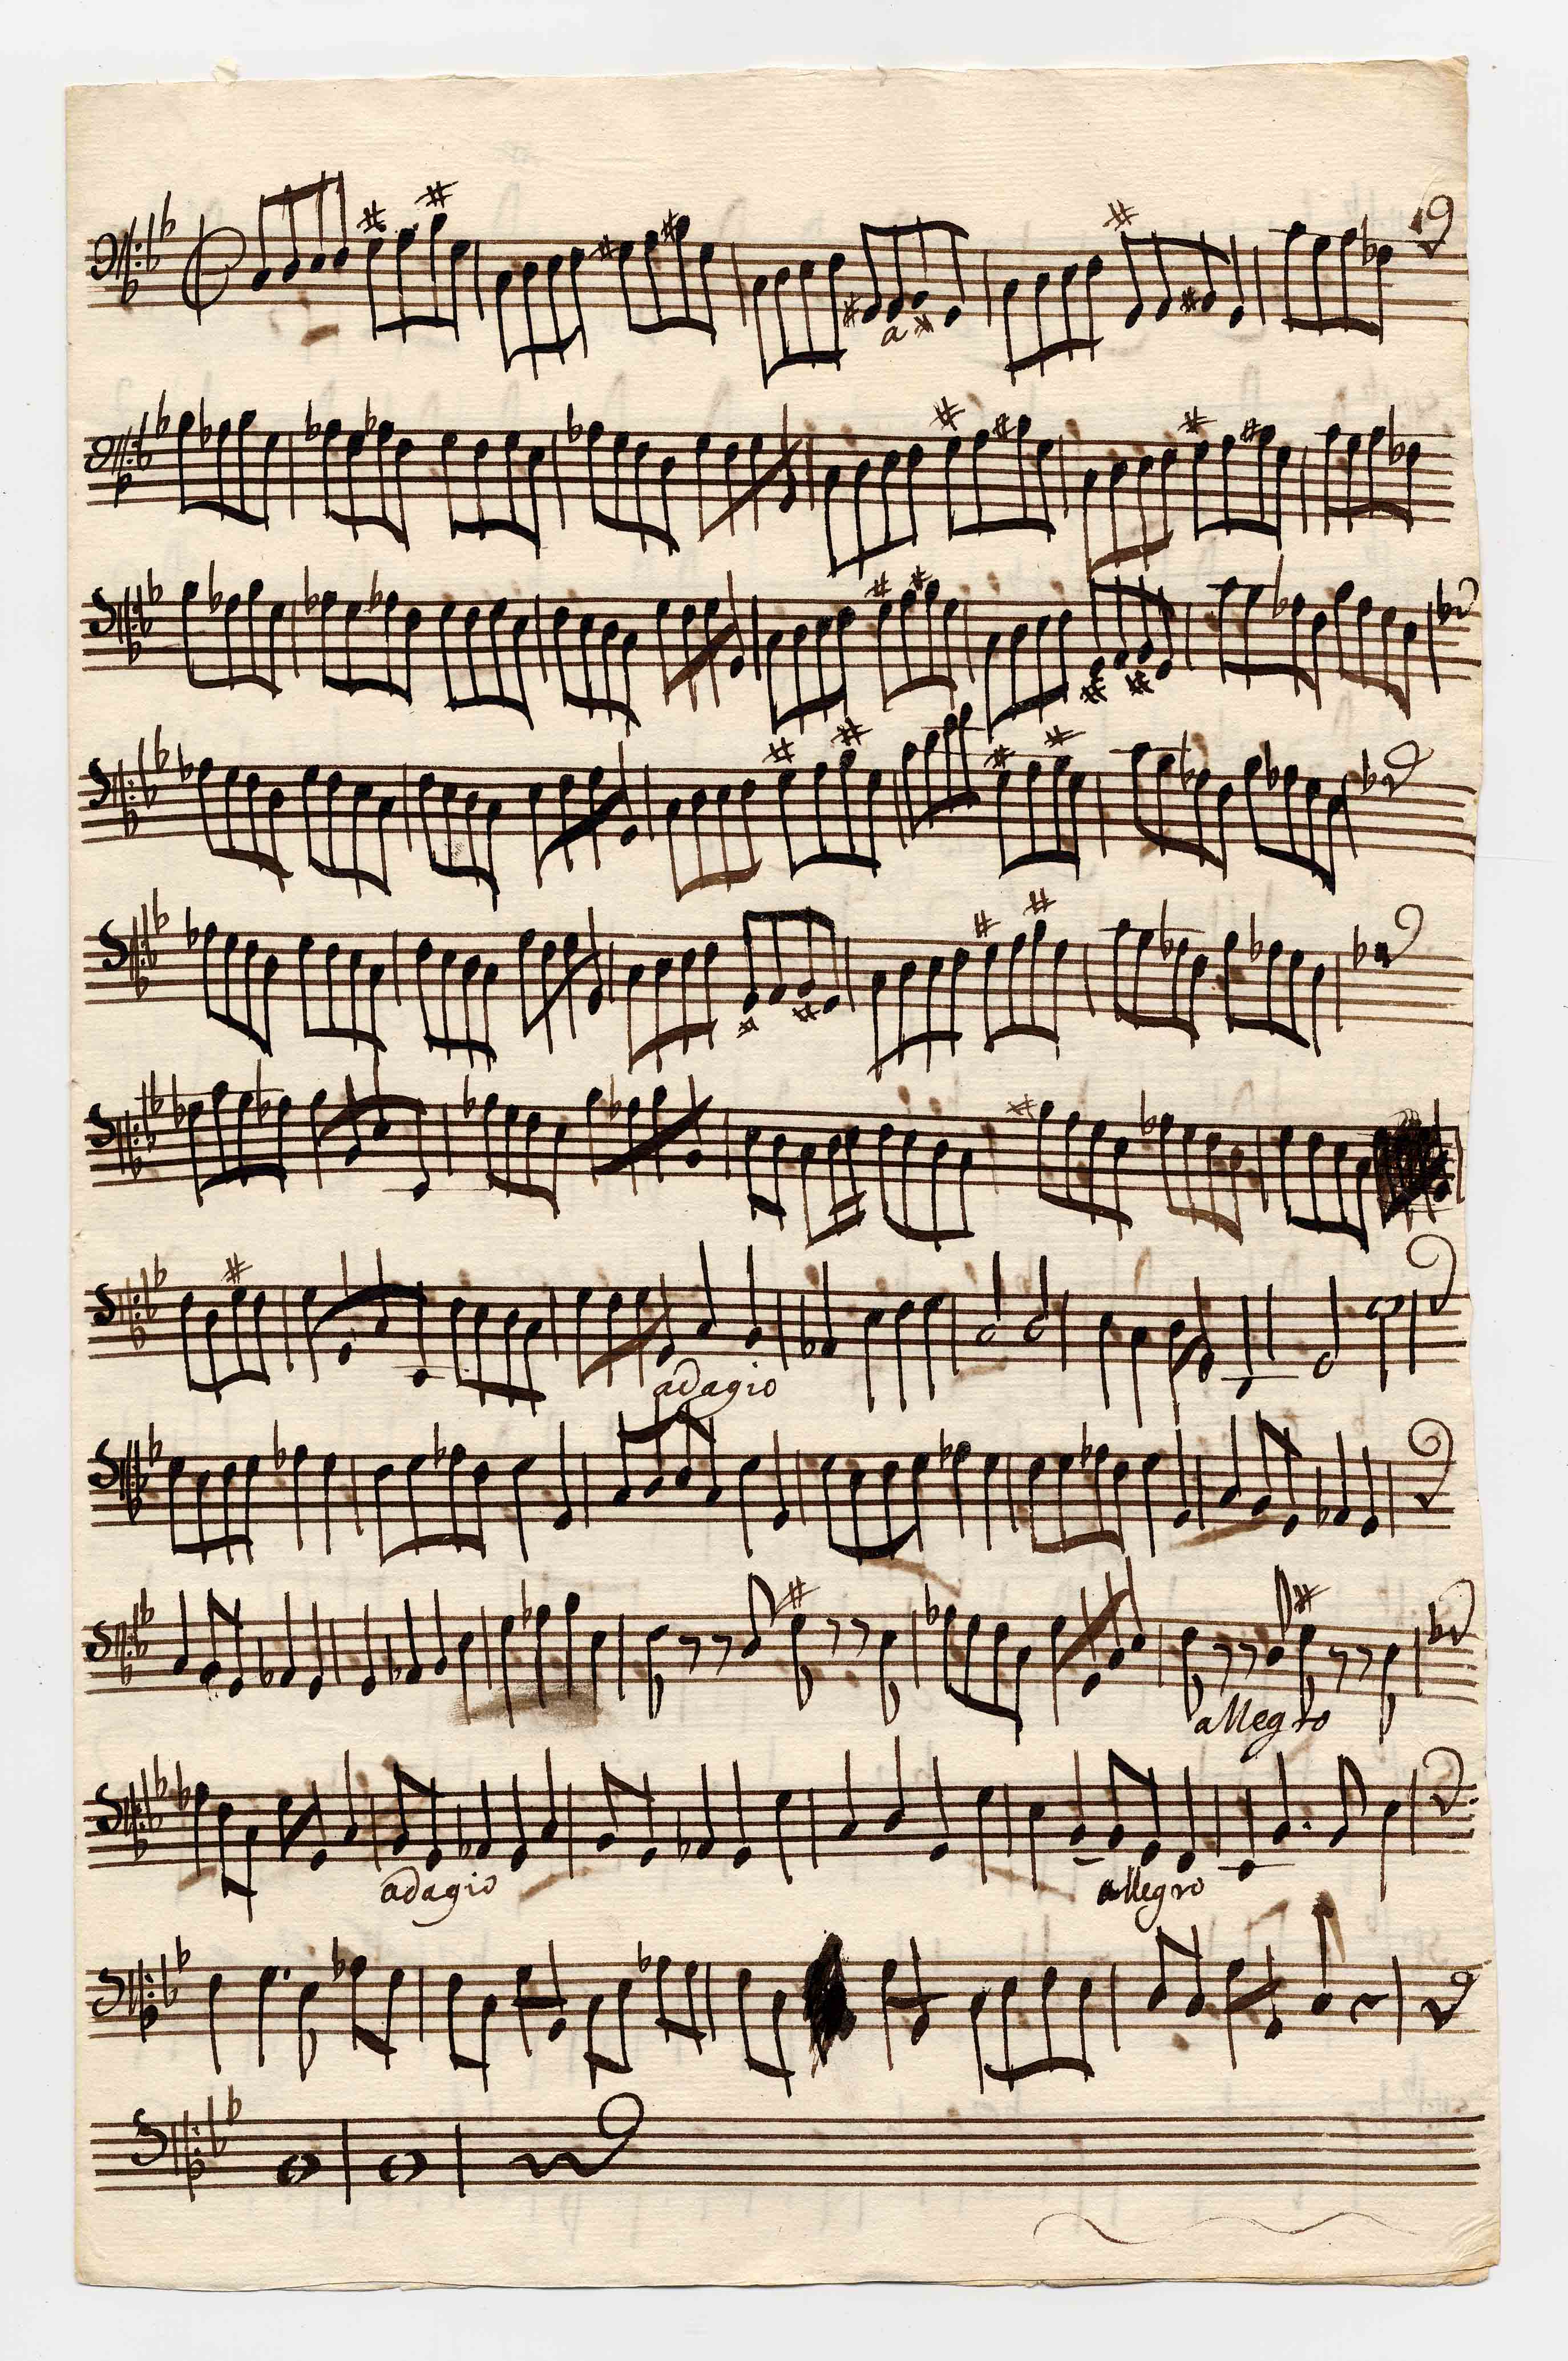 a
adagio
allegro
adagio allegro